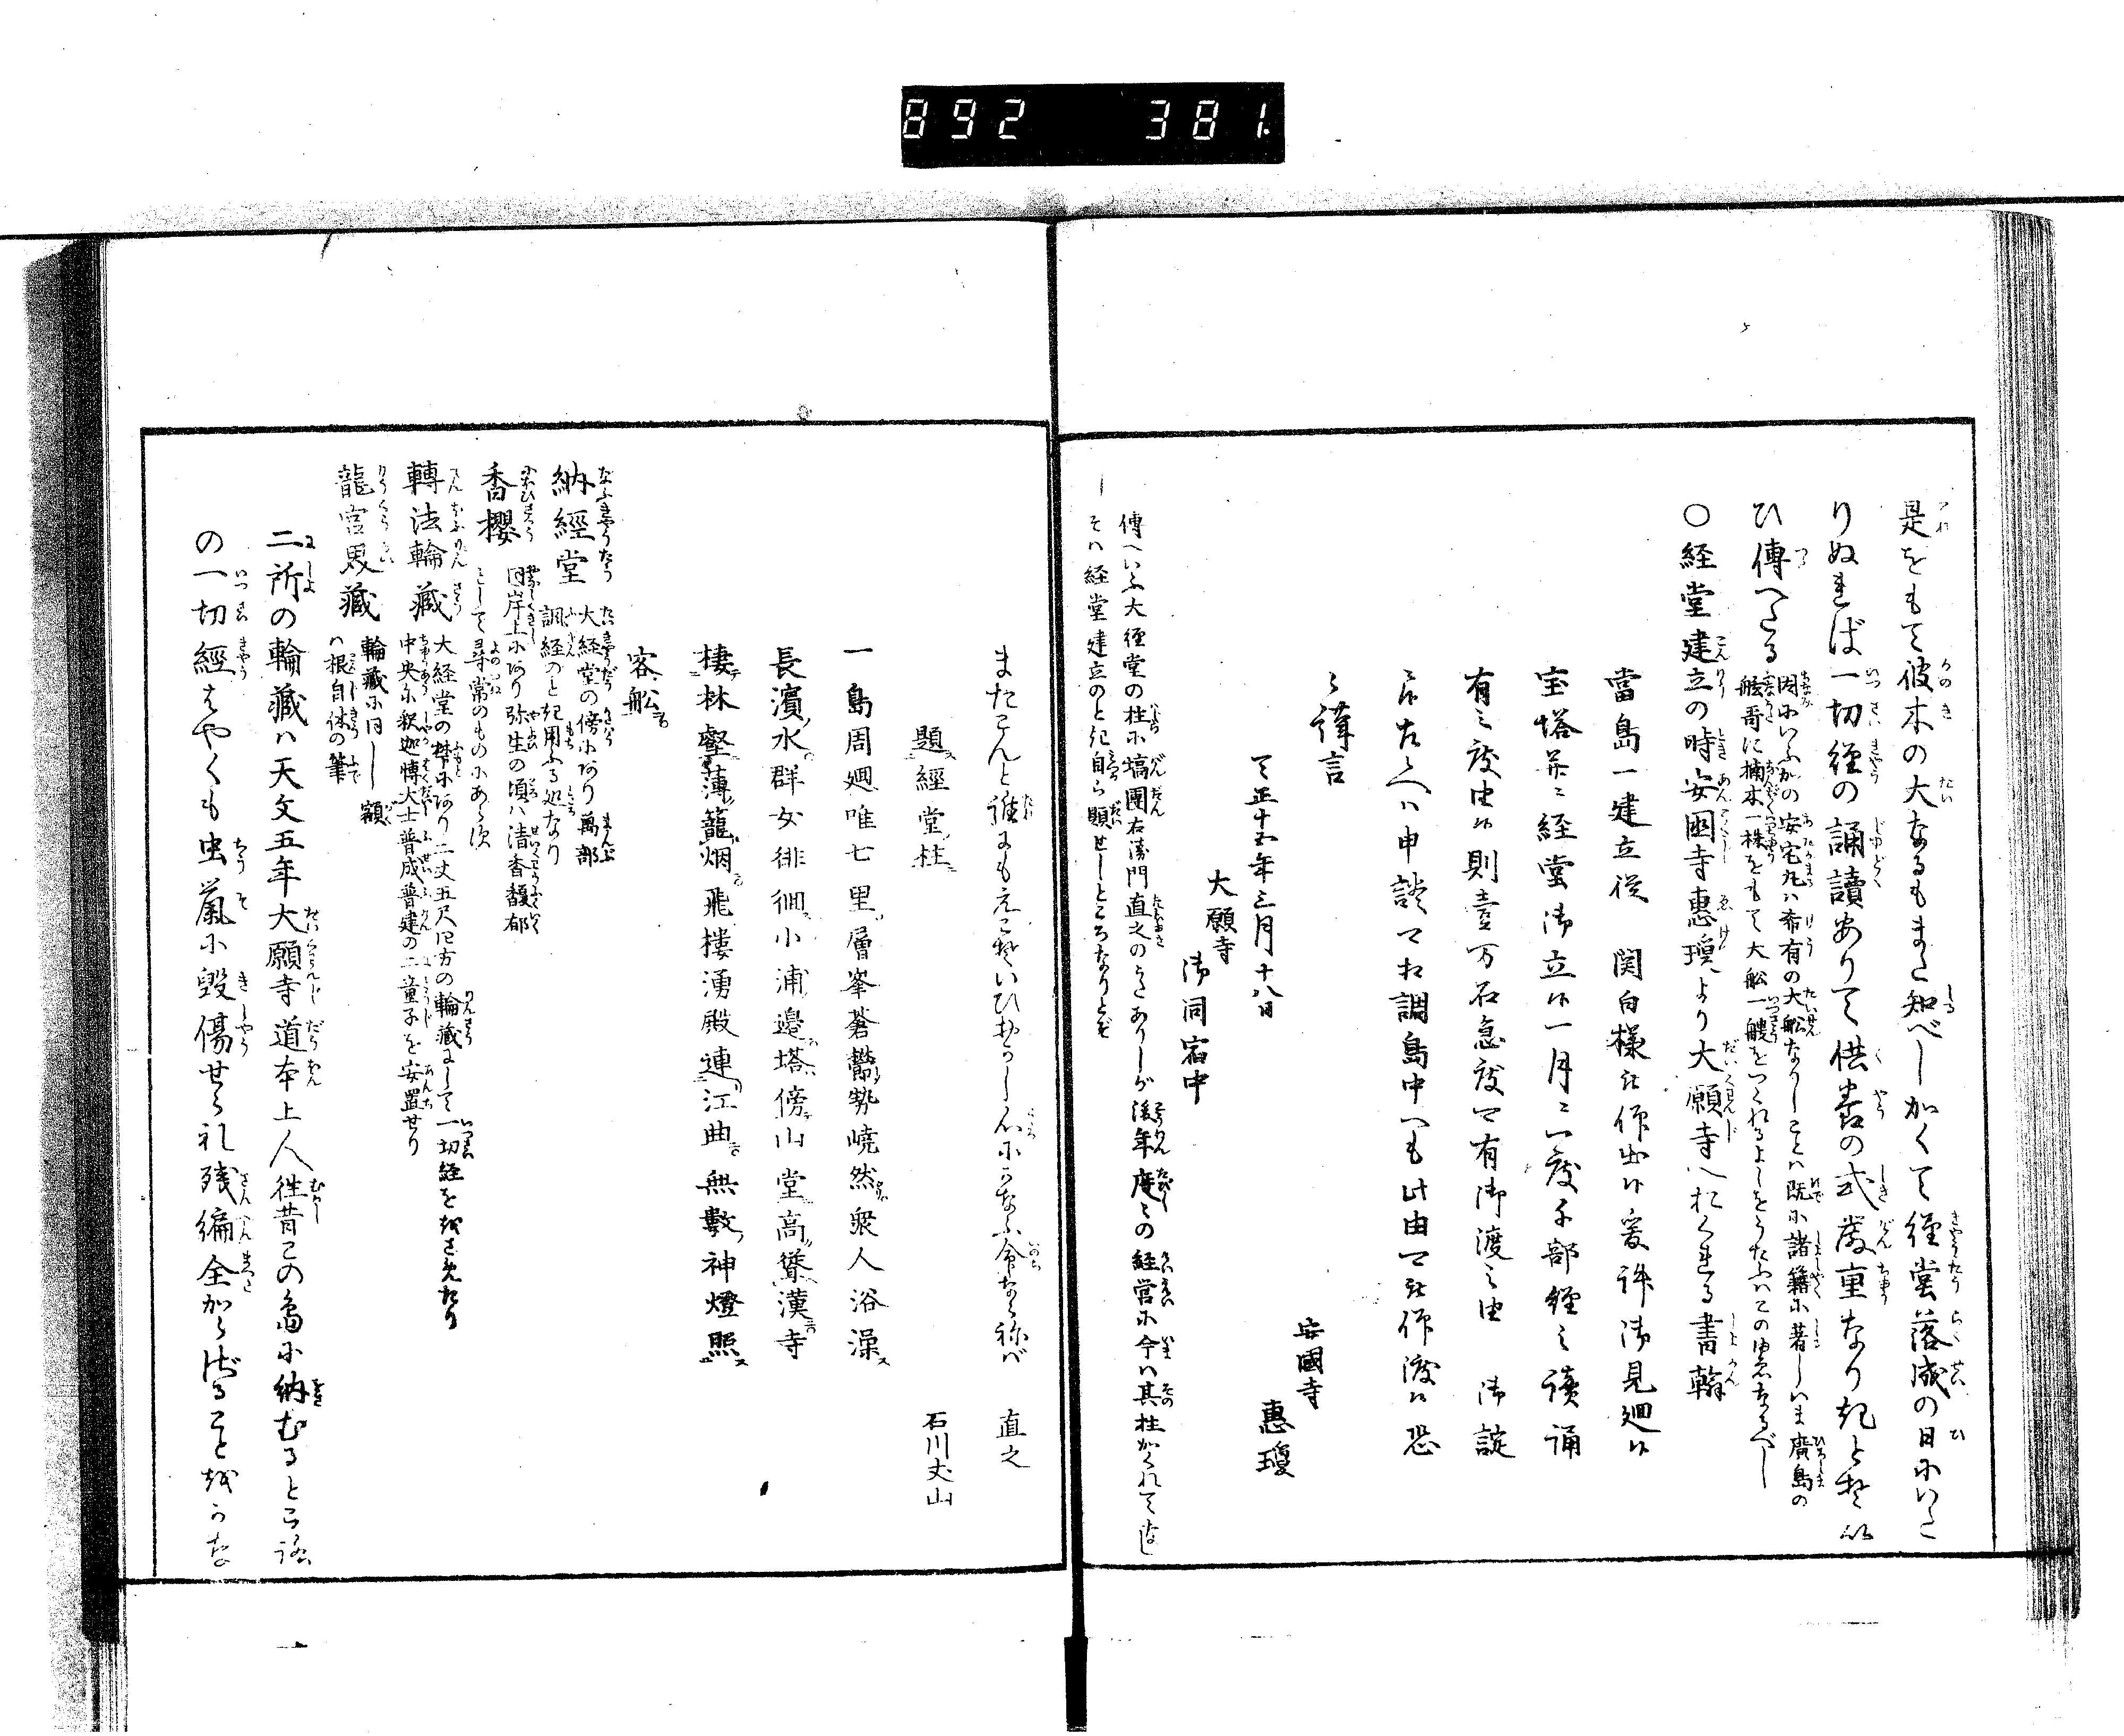 892 381
是をもて彼木の大なるもまた知べしかくて經堂落成の日にいた
りぬれば一切經の誦讀ありて供養の式嚴重なりきとぞ
ひ傳へたる
因にいふかの安宅丸は希有の大舩なりしことは既に諸籍に著しいま廣島の
舩哥に楠木一株をもて大舩一艘をつくれるよしをうたふはこの由なるべし
〇経堂建立の時安國寺惠瓊より大願寺へおくれる書翰
當島一建立従 関白様被仰出候爰許御見廻候
宝塔并ニ経堂御立候一月ニ一度千部經之讀誦
有之度由候則壹万石急度可有御渡之由 御諚
候 申談可相調島中へも此由可被仰渡候恐
々謹言
天正十五年三月十八日
安國寺
惠瓊
大願寺
御同宿中
傳へいふ大經堂の柱に塙團右衛門直之のうたありしが後年度々の経営に今は其柱かくれて
そは経堂建立のとき自ら題せしところなりとぞ
またこんと誰にもえこそいひおかし心にかなふ命ならねば 直之
題經堂柱 石川丈山
一島周廻唯七里層峯蒼鬱勢嶢然衆人浴澡
長濱水群女徘徊小浦邊塔傍山堂高聳漢寺
棲林壑薄籠烟飛樓湧殿連江曲無數神燈照
客舩
納經堂 大経堂の傍にあり萬部
調経のとき用ふる処なり
香櫻 同岸上にあり弥生の頃は清香馥郁
として尋常のものにあらず
轉法輪藏 大経堂の麓にあり二丈五尺四方の輪藏にして一切経をおさめたり
中央に釈迦愽大士普成普建の二童子を安置せり
龍宮思藏 輪藏に同じ額
は根自休の筆
二所の輪藏は天文五年大願寺道本上人徃昔この島に納むるところ
の一切經はやくも虫鼠に毀傷せられ残編全からざることをうな